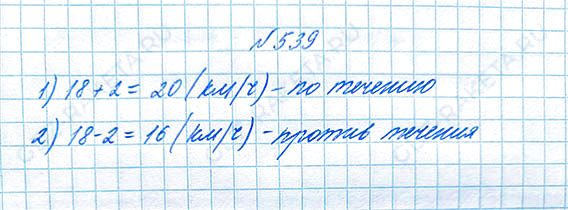 №539
1) 18+2 = 20 (км/ч) - по течению
2) 18-2 = 16 (км/ч) - против течения